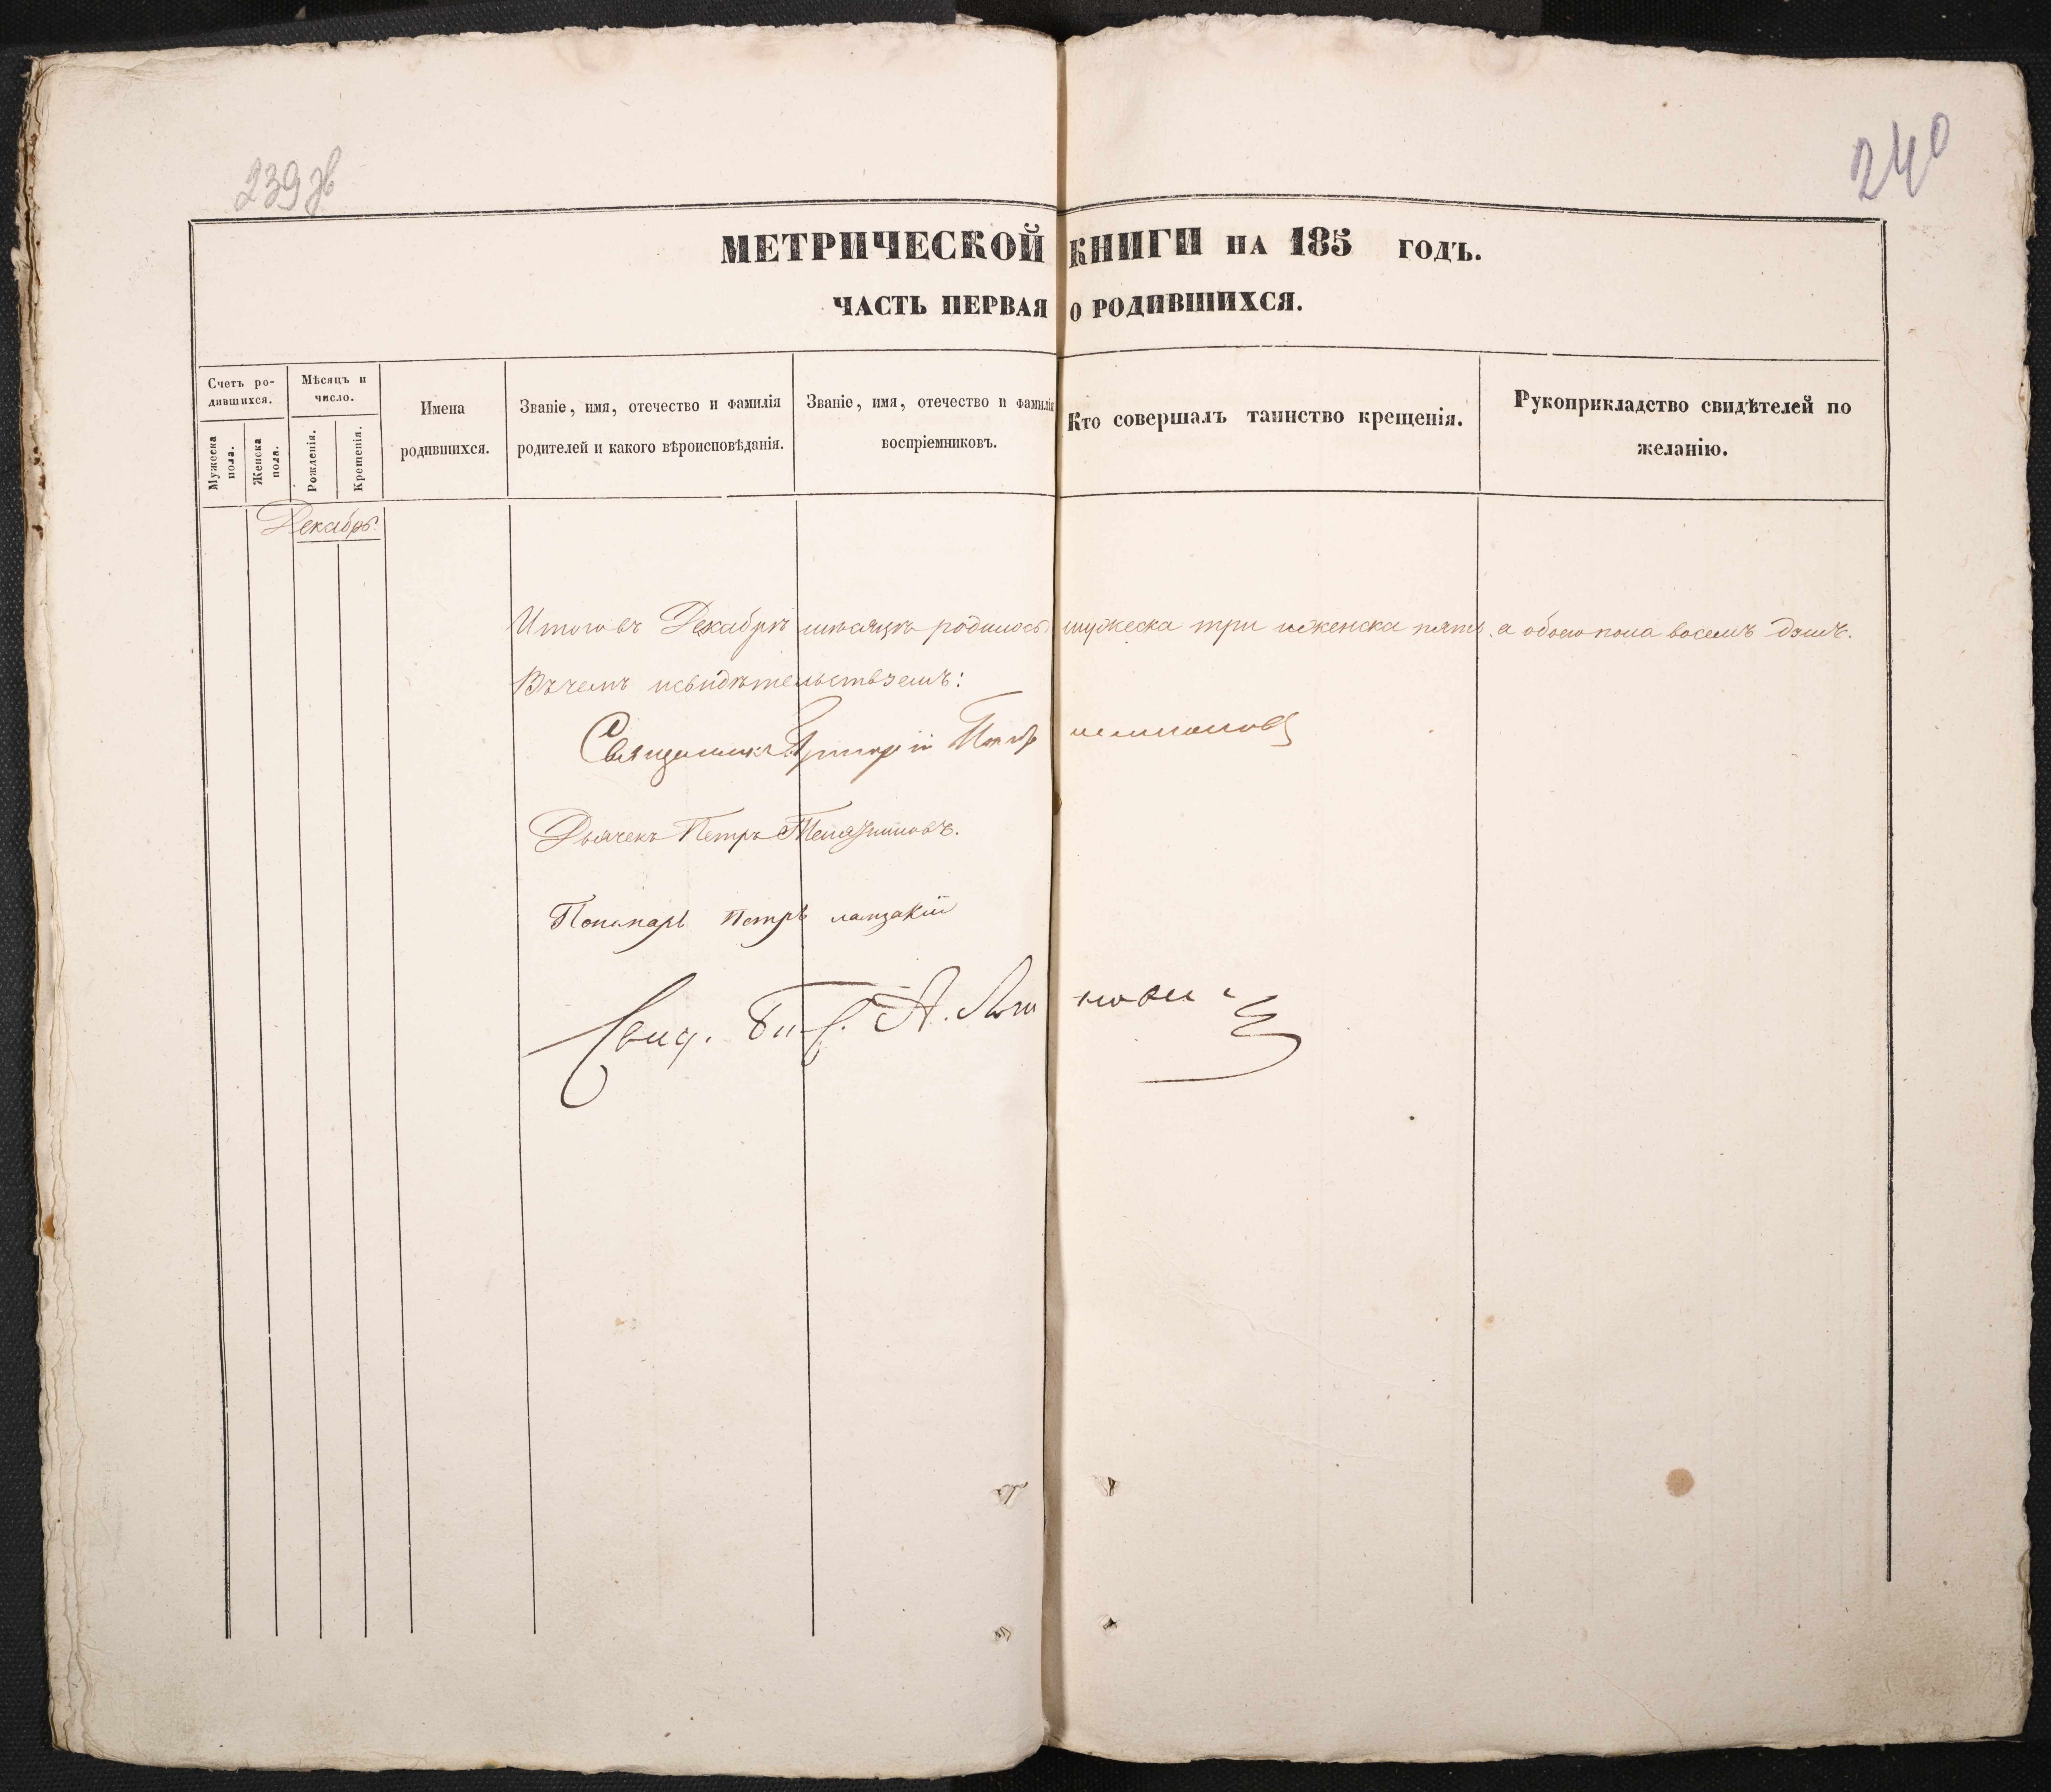 239 зв
240
МЕТРИЧЕСКОЙ КНИГИ НА 185 ГОДЪ.
ЧАСТЬ ПЕРВАЯ О РОДИВШИХСЯ.
Счетъ ро-
дившихся.
Мужеска
пола.
Женска
пола.
Мѣсяцъ и
число.
Рожденія.
Крещенія.
Имена
родившихся.
Званіе, имя, отечество и фамилія
родителей и какого вѣроисповѣданія.
Званіе, имя, отечество и фамилія
воспріемниковъ.
Кто совершалъ таинство крещенія.
Рукоприкладство свидѣтелей по
желанію.
Декабрь
Итого въ Декабрѣ мѣсяцѣ родилось мужеска три и женска пять, а обоего пола восемь душъ.
Въ чемъ и свидѣтельствуемъ:
Священникъ Григорій
Дьячекъ Петръ
Пономарь Петръ
Свид. Бл. С. А.